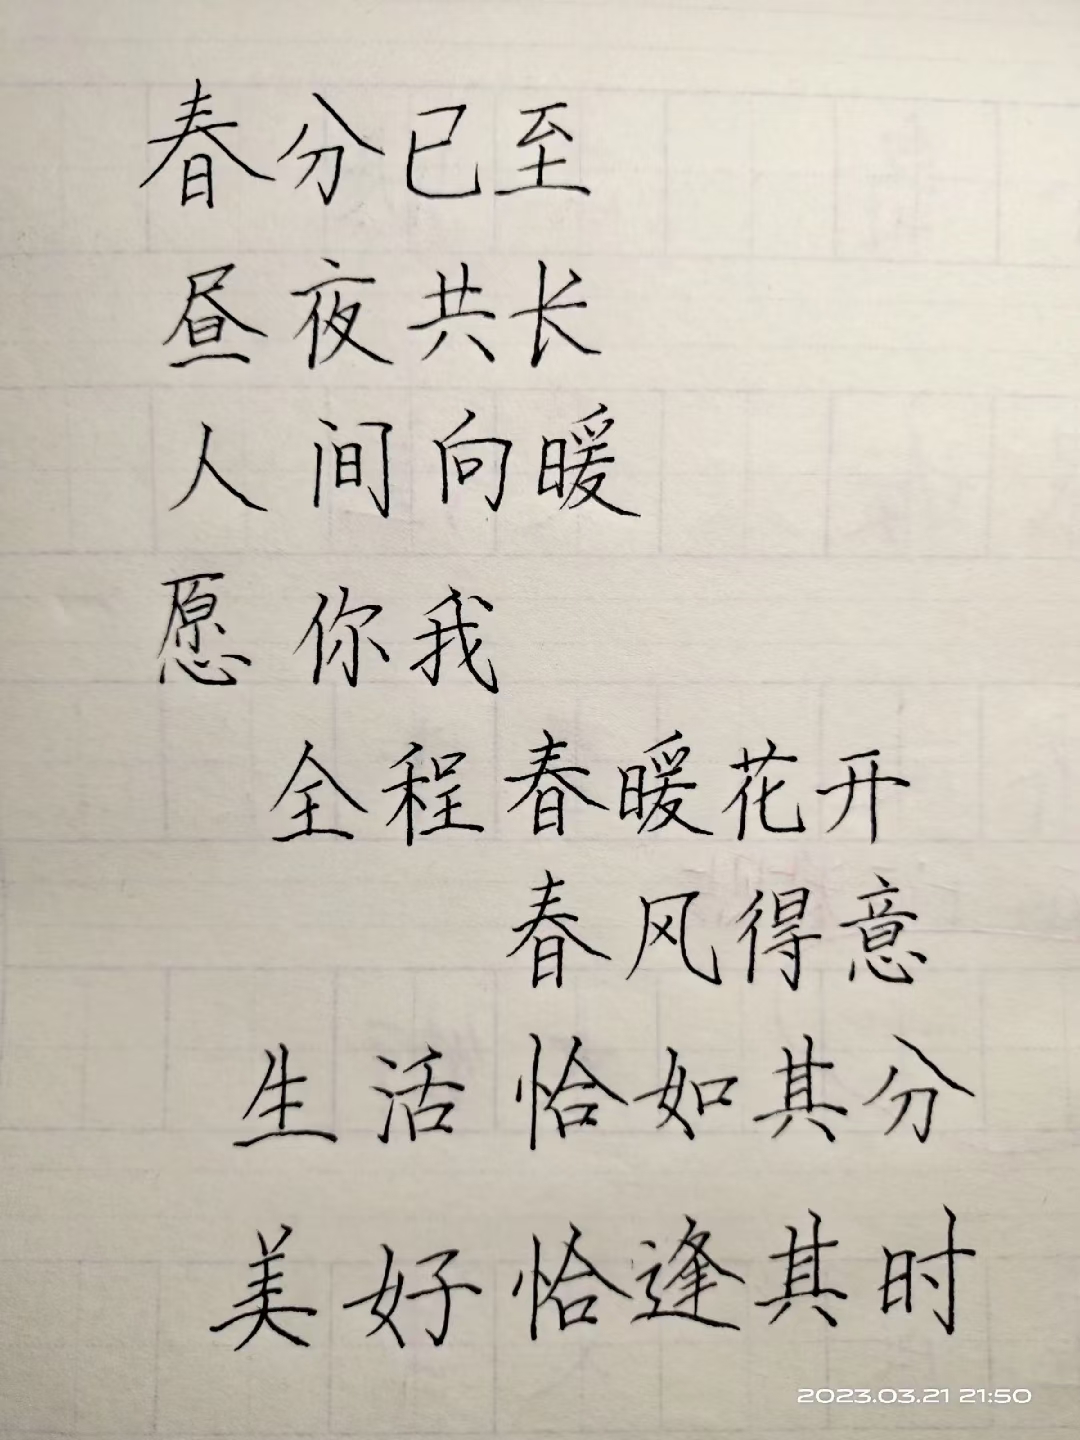 春分已至
昼夜共长
人间向暖
愿你我
全程春暖花开
春风得意
生活恰如其分
美好恰逢其时
2023.03.21 21:50